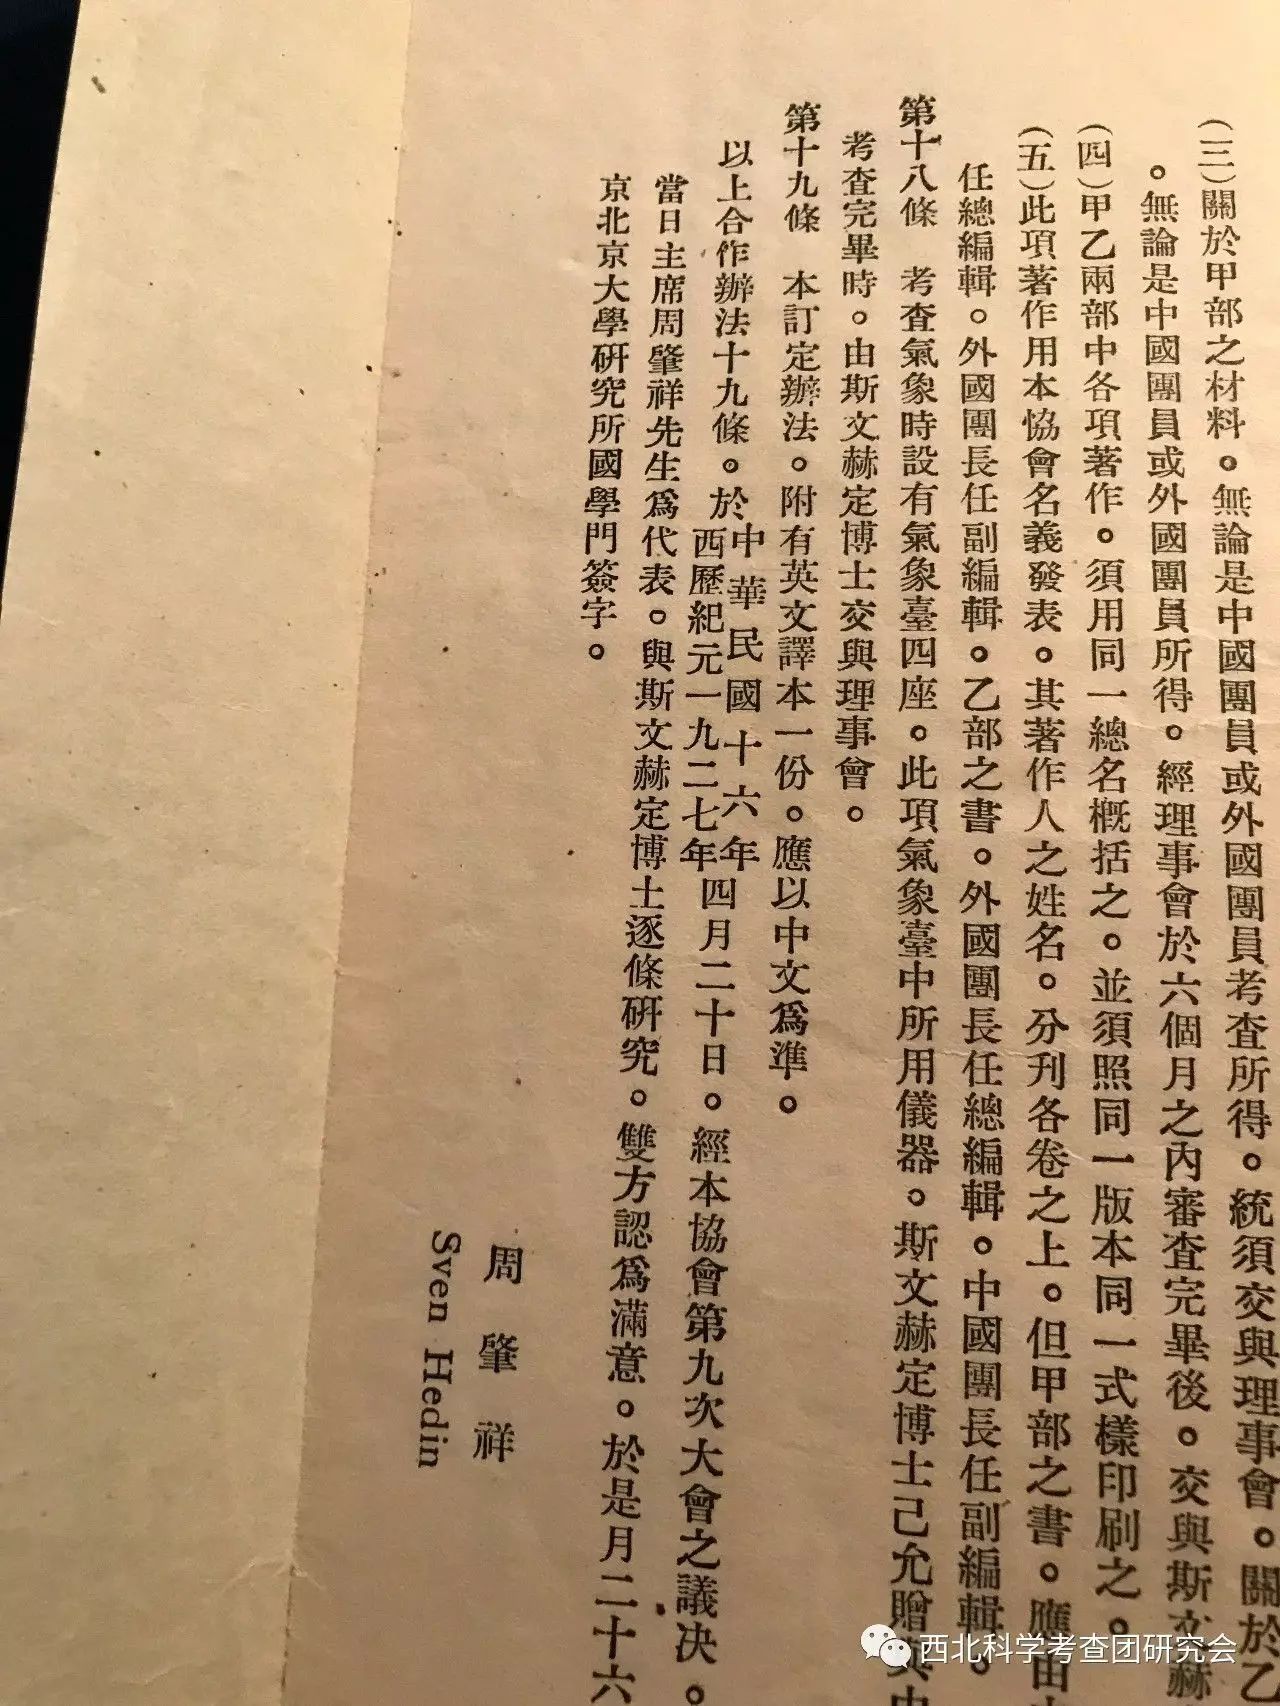 (三)關於甲部之材料。無論是中國團員或外國團員考查所得。統須交與理事會。關於乙
。無論是中國團員或外國團員所得。經理事會於六個月之內審查完畢後。交與斯文赫
(四)甲乙兩部中各項著作。須用同一總名概括之。並須照同一版本同一式樣印刷之。
(五)此項著作用本協會名義發表。其著作人之姓名。分刊各卷之上。但甲部之書。應由
任總編輯。外國團長任副編輯。乙部之書。外國團長任總編輯。中國團長任副編輯。
第十八條　考查氣象時設有氣象臺四座。此項氣象臺中所用儀器。斯文赫定博士己允贈與中
考查完畢時。由斯文赫定博士交與理事會。
第十九條　本訂定辦法。附有英文譯本一份。應以中文為準。
以上合作辦法十九條。於中華民國十六年西歷紀元一九二七年四月二十日。經本協會第九次大會之議決。
當日主席周肇祥先生為代表。與斯文赫定博士逐條研究。雙方認為滿意。於是月二十六
京北京大學研究所國學門簽字。
周肇祥
Sven Hedin
西北科学考查团研究会